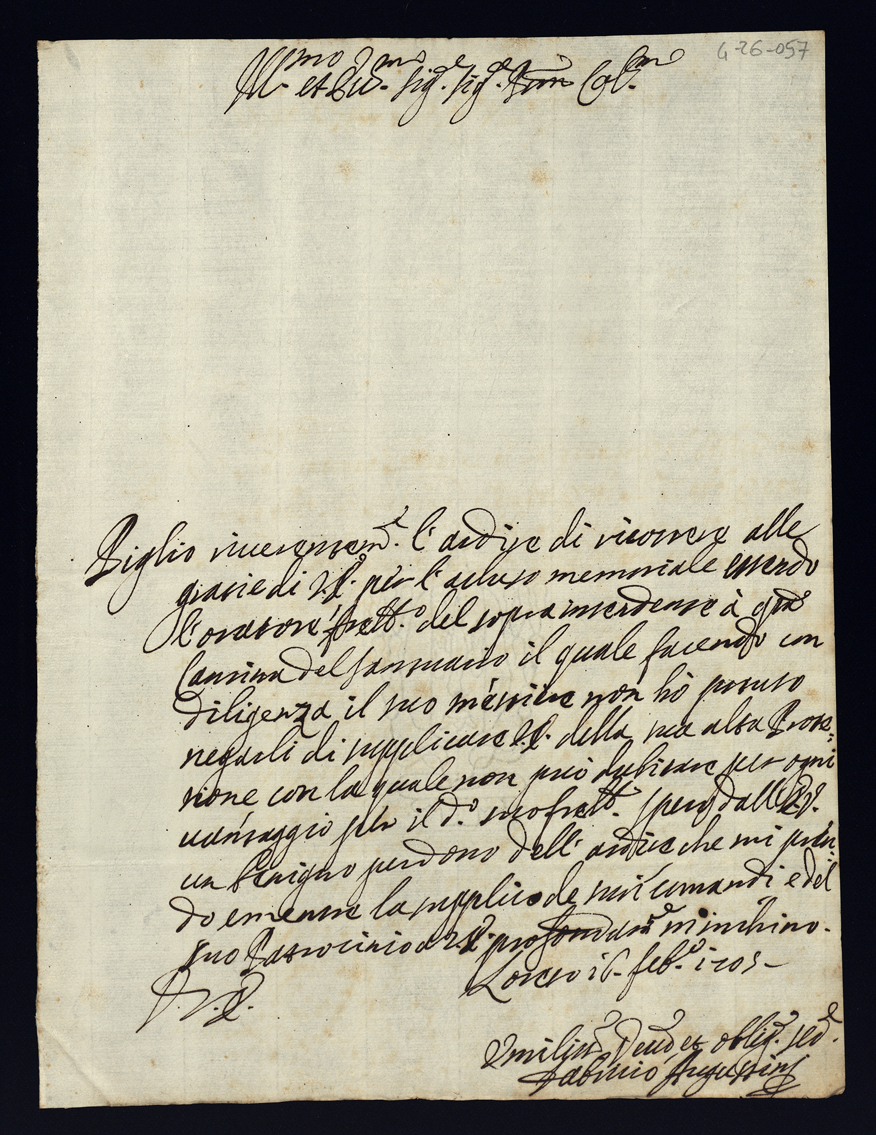 4-26-057
Ill.mo et Rev.mo Sig.e Sig.e P̄rōn Col.mo
Piglio riverentem.e l'ardire di ricorrere alle
grazie di V.S. per l'acluso memoriale essendo
l'oratore fratt.o del sopraintendente à q̄sta
Cantina del Santuario il quale facendo con
diligenza il suo mestiere non hò potuto
negarli di supplicare V.S. della sua alta Prote=
tione con la quale non può dubitare per ogni
vantaggio per il d.o suo fratt.o spero dalla
un benigno perdono dell'ardire che mi
do e mentre la supplico de suoi comandi e del
suo Patrocinio a V.S. profondam.e m'inchino.
Loreto 16. feb.o 1705-
D. V. S.
Umiliss.o Dev.o et oblig.o ser.e
Fabritio